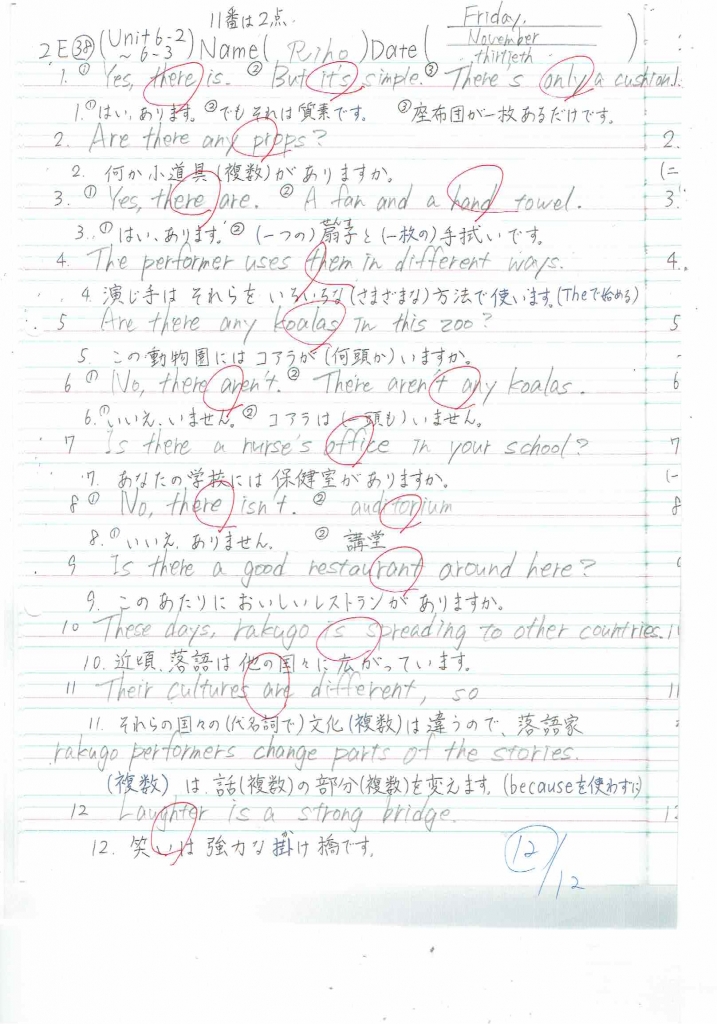 11番は2点.
2E㊳(Unit6-2 ~6-3) Name( Riho )Date( Friday, November thirtieth )
1. ① Yes, there is. ② But it's simple. ③ There's only a cushion.
1. ①はい、あります。②でもそれは質素です。 ③座布団が一枚あるだけです。
2. Are there any props? 2.
2. 何か小道具(複数)がありますか。
3. ① Yes, there are. ② A fan and a hand towel. 3.
3. ①はい、あります。②(一つの)扇子と(一枚の)手拭いです。
4 The performer uses them in different ways. 4.
4. 演じ手はそれらをいろいろな(さまざまな)方法で使います。(Theで始める)
5 Are there any koalas in this zoo? 5
5. この動物園にはコアラが(何頭か)いますか。
6 ① No, there aren't. ② There aren't any koalas. 6
6. ①いいえ、いません。② コアラは(一頭も)いません。
7 Is there a nurse's office in your school? 7
7. あなたの学校には保健室がありますか。
8 ① No, there isn't. ② auditorium 8
8. ①いいえ、ありません。 ② 講堂
9 Is there a good restaurant around here?
9. このあたりにおいしいレストランがありますか。
10 These days, rakugo is spreading to other countries.
10. 近頃、落語は他の国々に広がっています。
11 Their cultures are different, so 11
11. それらの国々の(代名詞で)文化(複数)は違うので、落語家
rakugo performers change parts of the stories.
(複数) は、話(複数)の部分(複数)を変えます。(becauseを使わずに)
12 Laughter is a strong bridge. 12
12. 笑いは強力な掛け橋です。
12/12